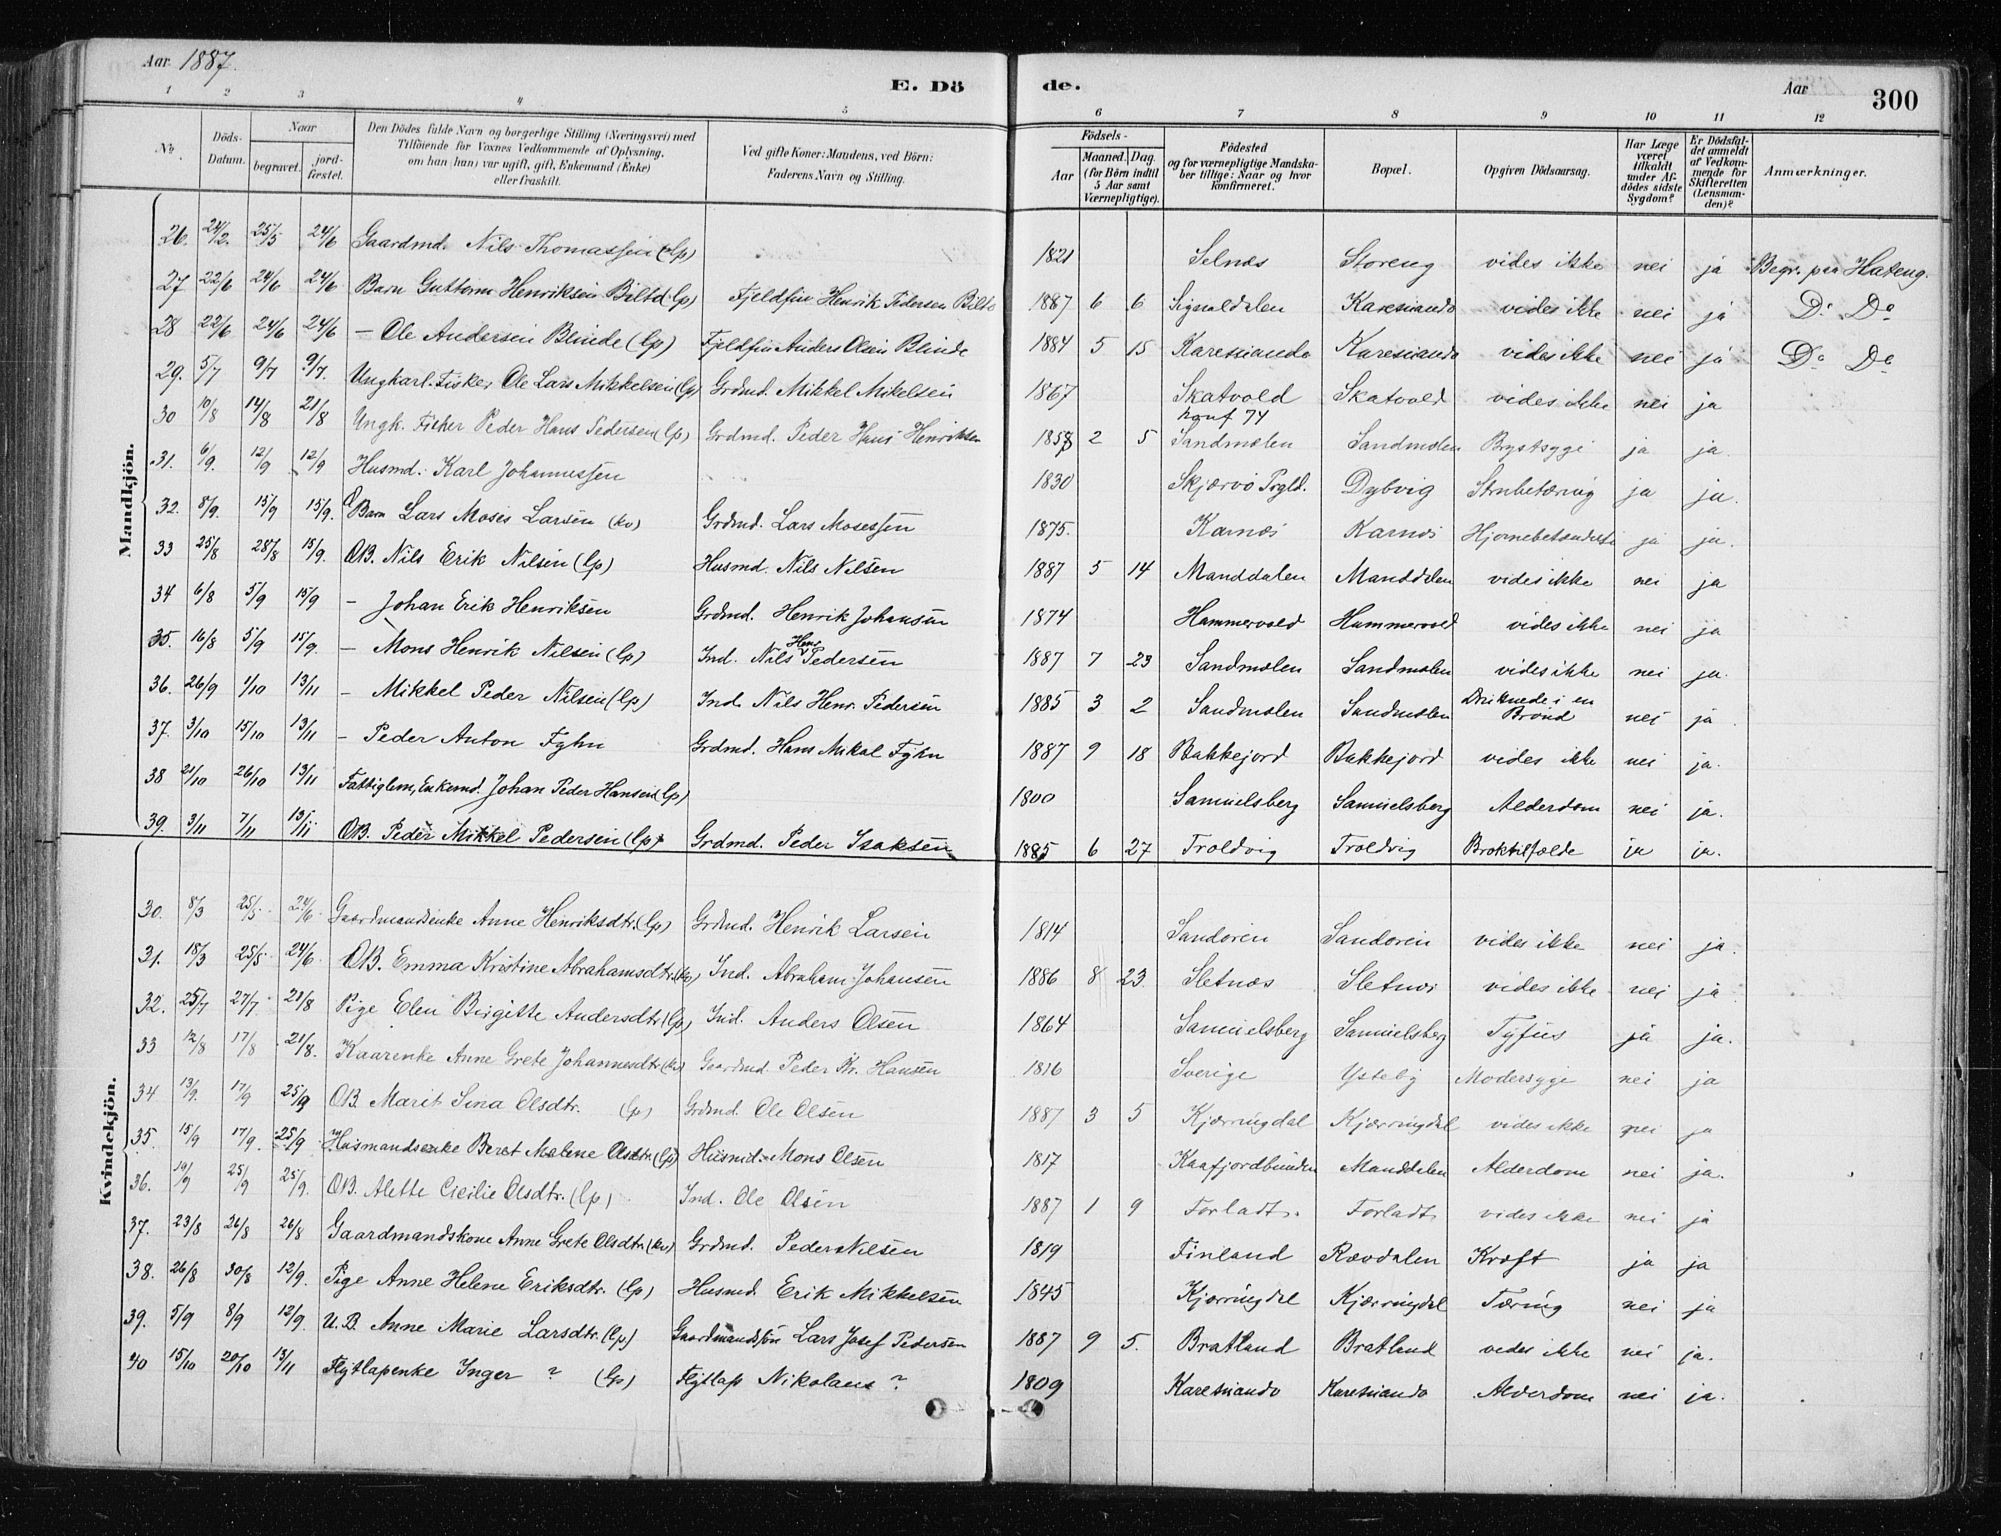 Aar 1887.
E. Dö de.
Aar
300
1 2 3 4 5 6 7 8 9 10 11 12
No. Döds-Datum. Naar begravet. jord-fæstet. Den Dödes fulde Navn og borgerlige Stilling (Næringsvei) med Tilföiende for Voxnes Vedkommende af Oplysning, om han (hun) var ugift, gift, Enkemand (Enke) eller fraskilt. Ved gifte Koner: Mandens, ved Börn: Faderens Navn og Stilling. Födsels- Aar Maaned. Dag. (for Börn indtil 5 Aar samt Værnepligtige). Födested og for værnepligtige Mandskaber tillige: Naar og hvor konfirmeret. Bopæl. Opgiven Dödsaarsag. Har Læge været tilkaldt under Afdödes sidste Sygdom? Er Dödsfaldet anmeldt af Vedkommende for Skifteretten (Lensmanden)? Anmærkninger.
Mandkjön.
26. 24/2. 25/5 24/6 Gaardmd. Nils Thomassen (lp) 1821 Selnæs Storeng vides ikke nei ja Begr. paa Hateng.
27 22/6 24/6 24/6 Barn Guttorm Henriksen Bilto (lp) Fjeldfin Henrik Pedersen Bilto 1887 6 6 Signaldalen Karesuando vides ikke nei ja Do Do
28 22/6 24/6 24/6 – Ole Andersen Blinde (lp) Fjeldfin Anders Olsen Blinde 1884 5 15 Karesuando Karesuando vides ikke nei ja Do Do
29. 5/7 9/7 9/7. Ungkarl. Fisker Ole Lars Mikkelsen (lp) Grdmd. Mikkel Mikelsen 1867 Skatvold Skatvold vides ikke nei ja
30 10/8 14/8 21/8 Ungk. Fisker Peder Hans Pedersen (lp) Grdmd. Peder Hans Henriksen 1858 2 5 konf 74 Sandmælen Sandmælen Brystsyge ja ja.
31. 6/9. 12/9 12/9 Husmd. Karl Johannessen 1830 Skjærvö Prgld. Dybvig Strubetæring ja ja.
32. 8/9. 15/9 15/9. Barn Lars Moses Larsen (kv) Grdmd. Lars Mosessen 1875. Karnæs Karnæs Hjernebetændelse ja ja.
33 25/8 28/8 15/9. OB. Nils Erik Nilsen (lp) Husmd. Nils Nilsen 1887 5 14 Manddalen Manddalen vides ikke nei ja
34 6/8 5/9 15/9 – Johan Erik Henriksen Grdmd. Henrik Johansen 1874 Hammervold Hammervold vides ikke nei ja
35. 16/8 5/9 15/9. – Mons Henrik Nilsen (lp) Ind. Nils Henr Pedersen 1887 7 23 Sandmælen Sandmælen vides ikke nei ja.
36. 26/9 1/10 13/11 – Mikkel Peder Nilsen (lp) Ind. Nils Henr. Pedersen 1885 3 2 Sandmælen Sandmælen Druknede i en Brönd nei ja
37. 3/10 15/10 13/11 – Peder Anton Fyhn Grdmd. Hans Mikal Fyhn 1887 9 18 Bakkejord Bakkejord vides ikke nei ja.
38 21/10 26/10 13/11 Fattiglem, Enkemd. Johan Peder Hansen (lp) 1800 Samuelsberg Samuelsberg Alderdom nei ja.
39. 3/11 7/11 13/11 OB. Peder Mikkel Pedersen (lp) Grdmd. Peder Isaksen 1885 6 27 Troldvig Troldvig Broktilfælde ja ja.
Kvindekjön.
30. 8/3 25/5. 24/6. Gaardmandsenke Anne Henriksdtr. (lp) Grdmd. Henrik Larsen 1814 Sandören Sandören vides ikke nei ja.
31. 18/3 25/5. 24/6. OB. Emma Kristine Abrahamsdtr. (kv) Ind. Abraham Johansen 1886 8 23 Sletnæs Sletnæs vides ikke nei ja
32. 25/7 27/7 21/8 Pige Elen Birgitte Andersdtr. (lp) Ind. Anders Olsen 1864 Samuelsberg Samuelsberg Tyfus ja ja.
33 12/8 17/8 21/8. Kaarenke Anne Grete Johannesdtr. (kv) Gaardmd Peder Kr. Hansen 1816 Sverige Ysteby Modersyge nei ja
34 13/9. 17/9 25/9 OB. Marit Sina Olsdtr. (lp) Grdmd. Ole Olsen 1887 3 5 Kjærringdal Kjærringdal vides ikke nei ja
35. 15/9 17/9. 25/9 Husmandsenke Beret Malene Olsdtr. (lp) Husmd. Mons Olsen 1817 Kaafjordbunden Manddalen Alderdom nei ja.
36. 19/9 25/9 25/9. OB. Alette Cicilie Olsdtr. (lp) Ind. Ole Olsen 1887 1 9 Forladt. Forladt. vides ikke nei ja
37. 23/8 26/8 26/8 Gaardmandskone Anne Grete Olsdtr. (kv) Grdmd. Peder Nilsen 1819 Finland Rævdalen Kræft ja ja
38. 26/8 30/8 12/9. Pige Anne Helene Eriksdtr. (lp) Husmd. Erik Mikkelsen 1845 Kjærringdal Kjærringdal Tæring nei ja
39. 5/9 8/9 12/9. U.B. Anne Marie Larsdtr. (lp) Gaardmandssön Lars Josef Pedersen 1887 9 5. Bratland Bratland vides ikke nei ja.
40 15/10 20/10 13/11 Flytlapenke Inger ? (lp) Flytlap Nikolaus ? 1809 Karesuando Karesuando Alderdom nei ja.